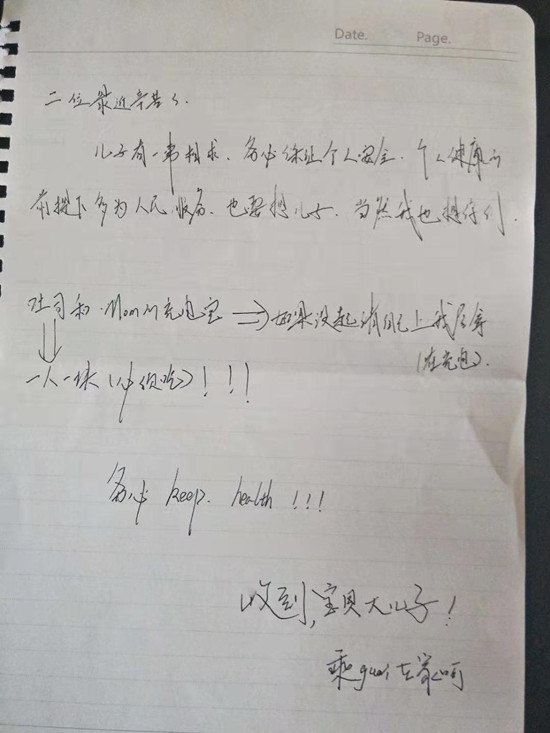 Date. Page.
二位最近辛苦了.
儿子有一事相求. 务必保证个人安全. 个人健康的
前提下多为人民服务. 也要想儿子. 当然我也想你们.
吐司和Mom的充电宝 ⇒ 如果没起请自己上我房拿
(在充电).
⇓
一人一块(必须吃)!!!
务必 keep. health !!!
收到,宝贝大儿子!
乖guai在家呵